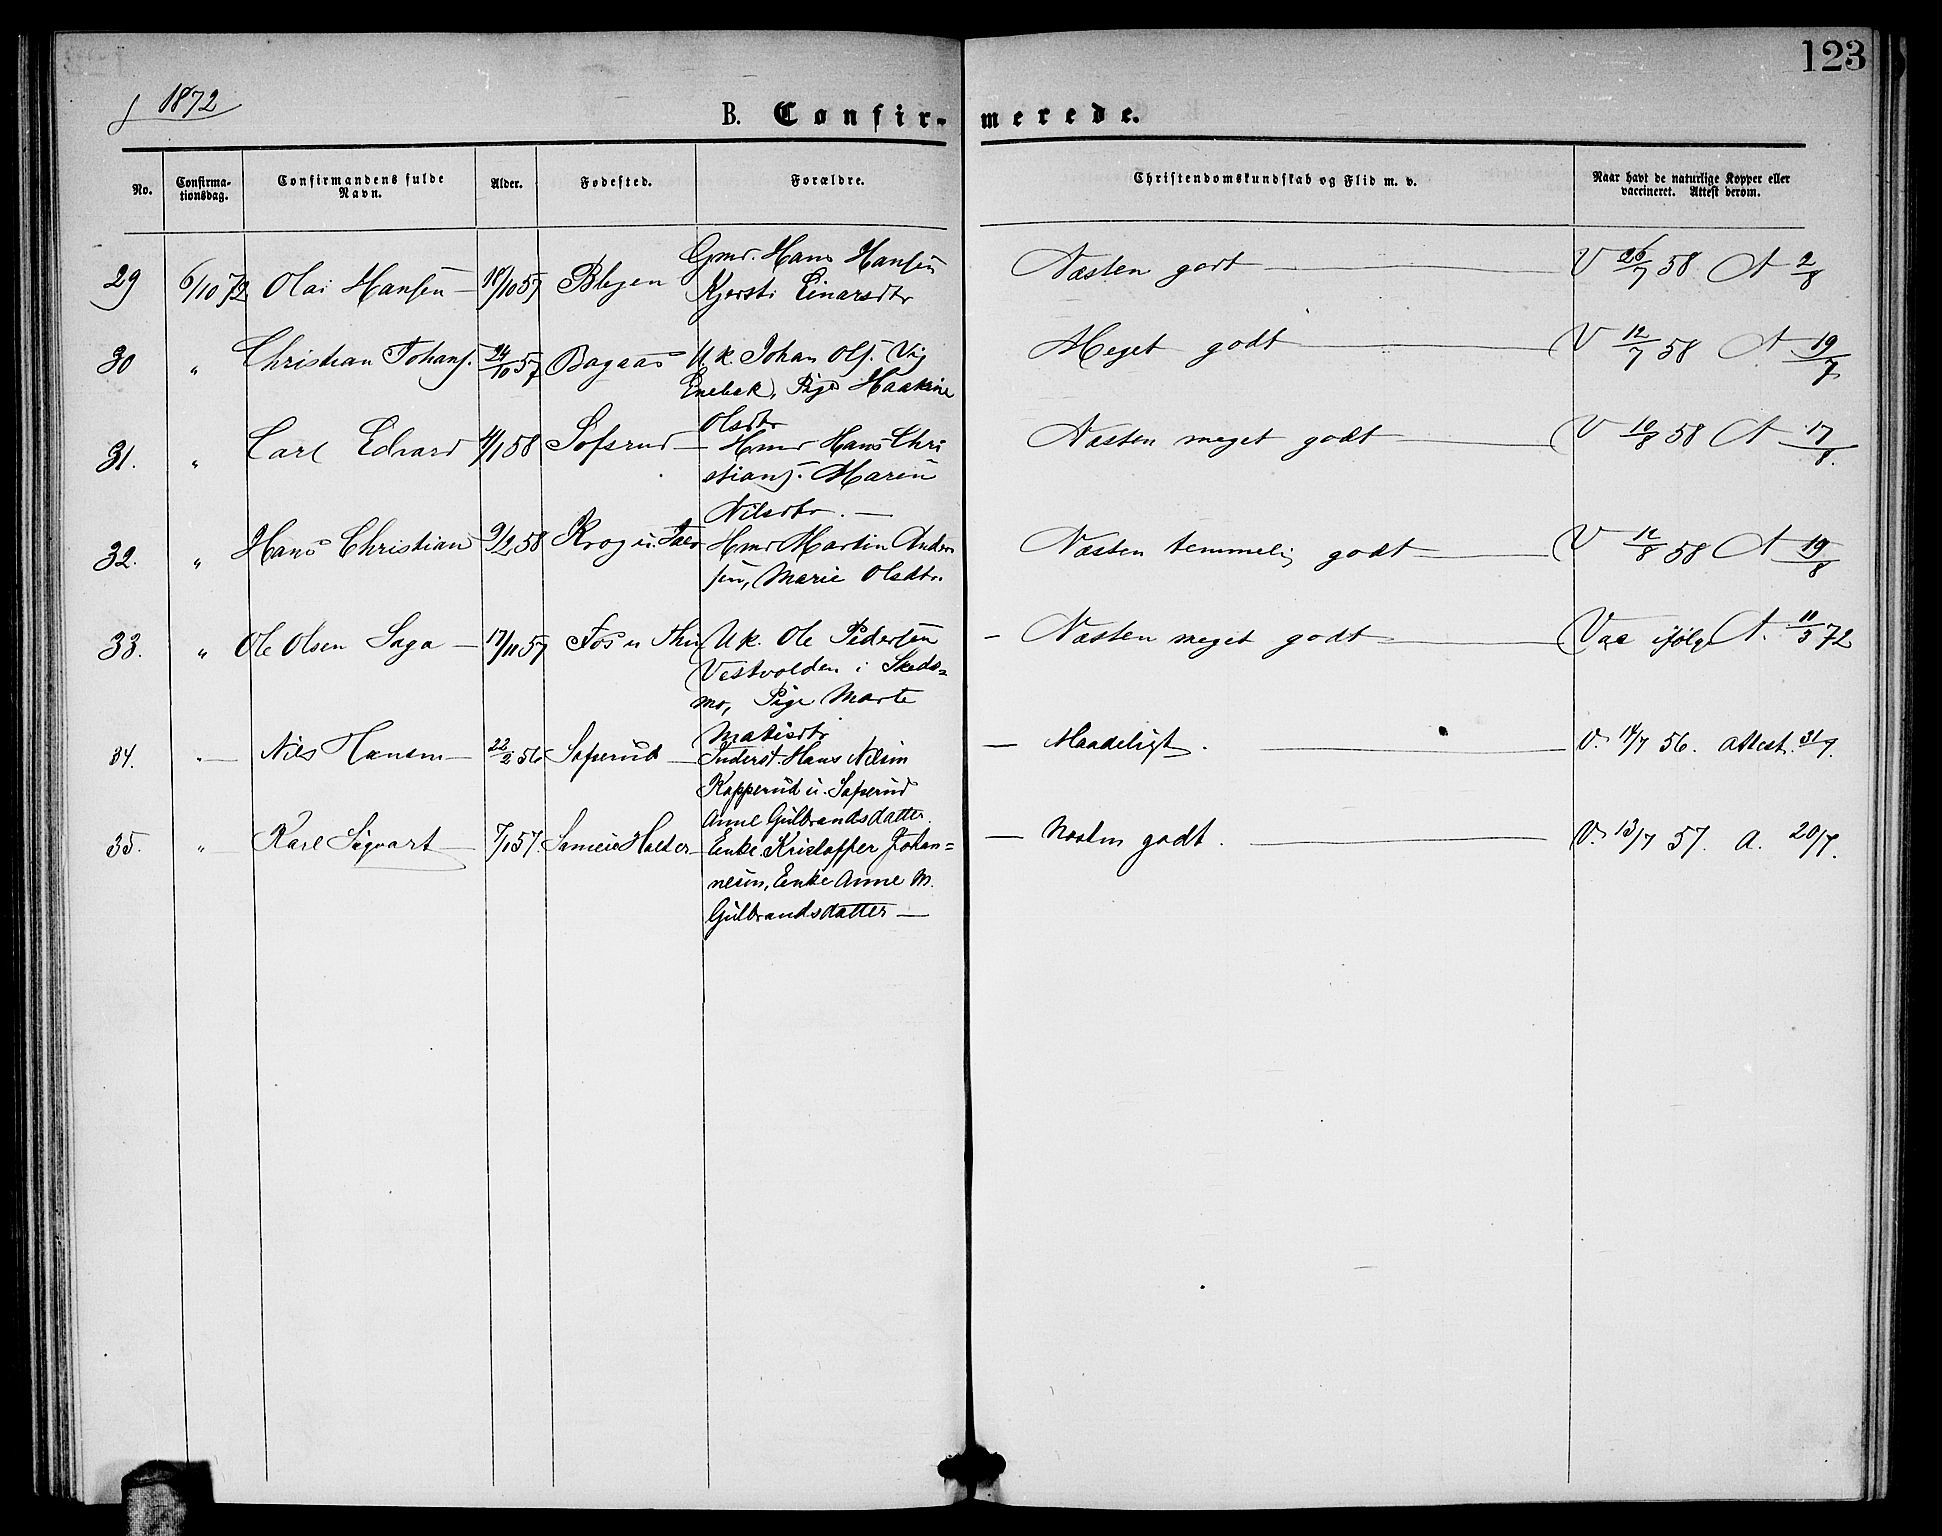 123
1872
B. Confir- merede.
No.
Confirma-
tionsdag.
Confirmandens fulde
Navn.
Alder.
Fødested.
Forældre.
Christendomskundskab og Flid m. v.
Naar havt de naturlige Kopper eller
vaccineret. Attest derom.
29 6/10 72 Olai Hansen 18/10 57 Blegen Gmd. Hans Hansen
Kjersti Einarsdtr
Næsten godt V 26/7 58 A 2/8
30 " Christian Johans. 24/10 57 Bagaas U. k. Johan Ols. Vig
Enebak, Pige Haakine
Olsdtr
Meget godt V 12/7 58 A 19/7
31. " Carl Edvard 4/1 58 Sofsrud Hmd Hans Chri
stians. Maren
Nilsdtr.
Næsten meget godt V 10/8 58 A 17/8.
32. " Hans Christian 9/2 58 Krog u. Hmd Martin Ander
sen, Marie Olsdtr.
Næsten temmelig godt V 12/8 58 A 19/8
33. " Ole Olsen Saga 17/11 57 Fos u U k. Ole Pedersen
Vestvolden i Skeds=
mo, Pige Marte
Matisdtr
Næsten meget godt Vac ifølge A. 11/3 72
34. " Nils Hansen 22/2 56 Sofsrud Inderst. Hans Nilsen
Kopperud u. Sofsrud
Anne Gulbrandsdatter.
Maadeligt. V. 14/7 56. Attest. 31/7.
35. " Karl Sigvart 7/1 57. Holter Enke. Kristoffer Johan=
nesen, Enke Anne M.
Gulbrandsdatter
Næsten godt. V. 13/7 57. A. 20/7.